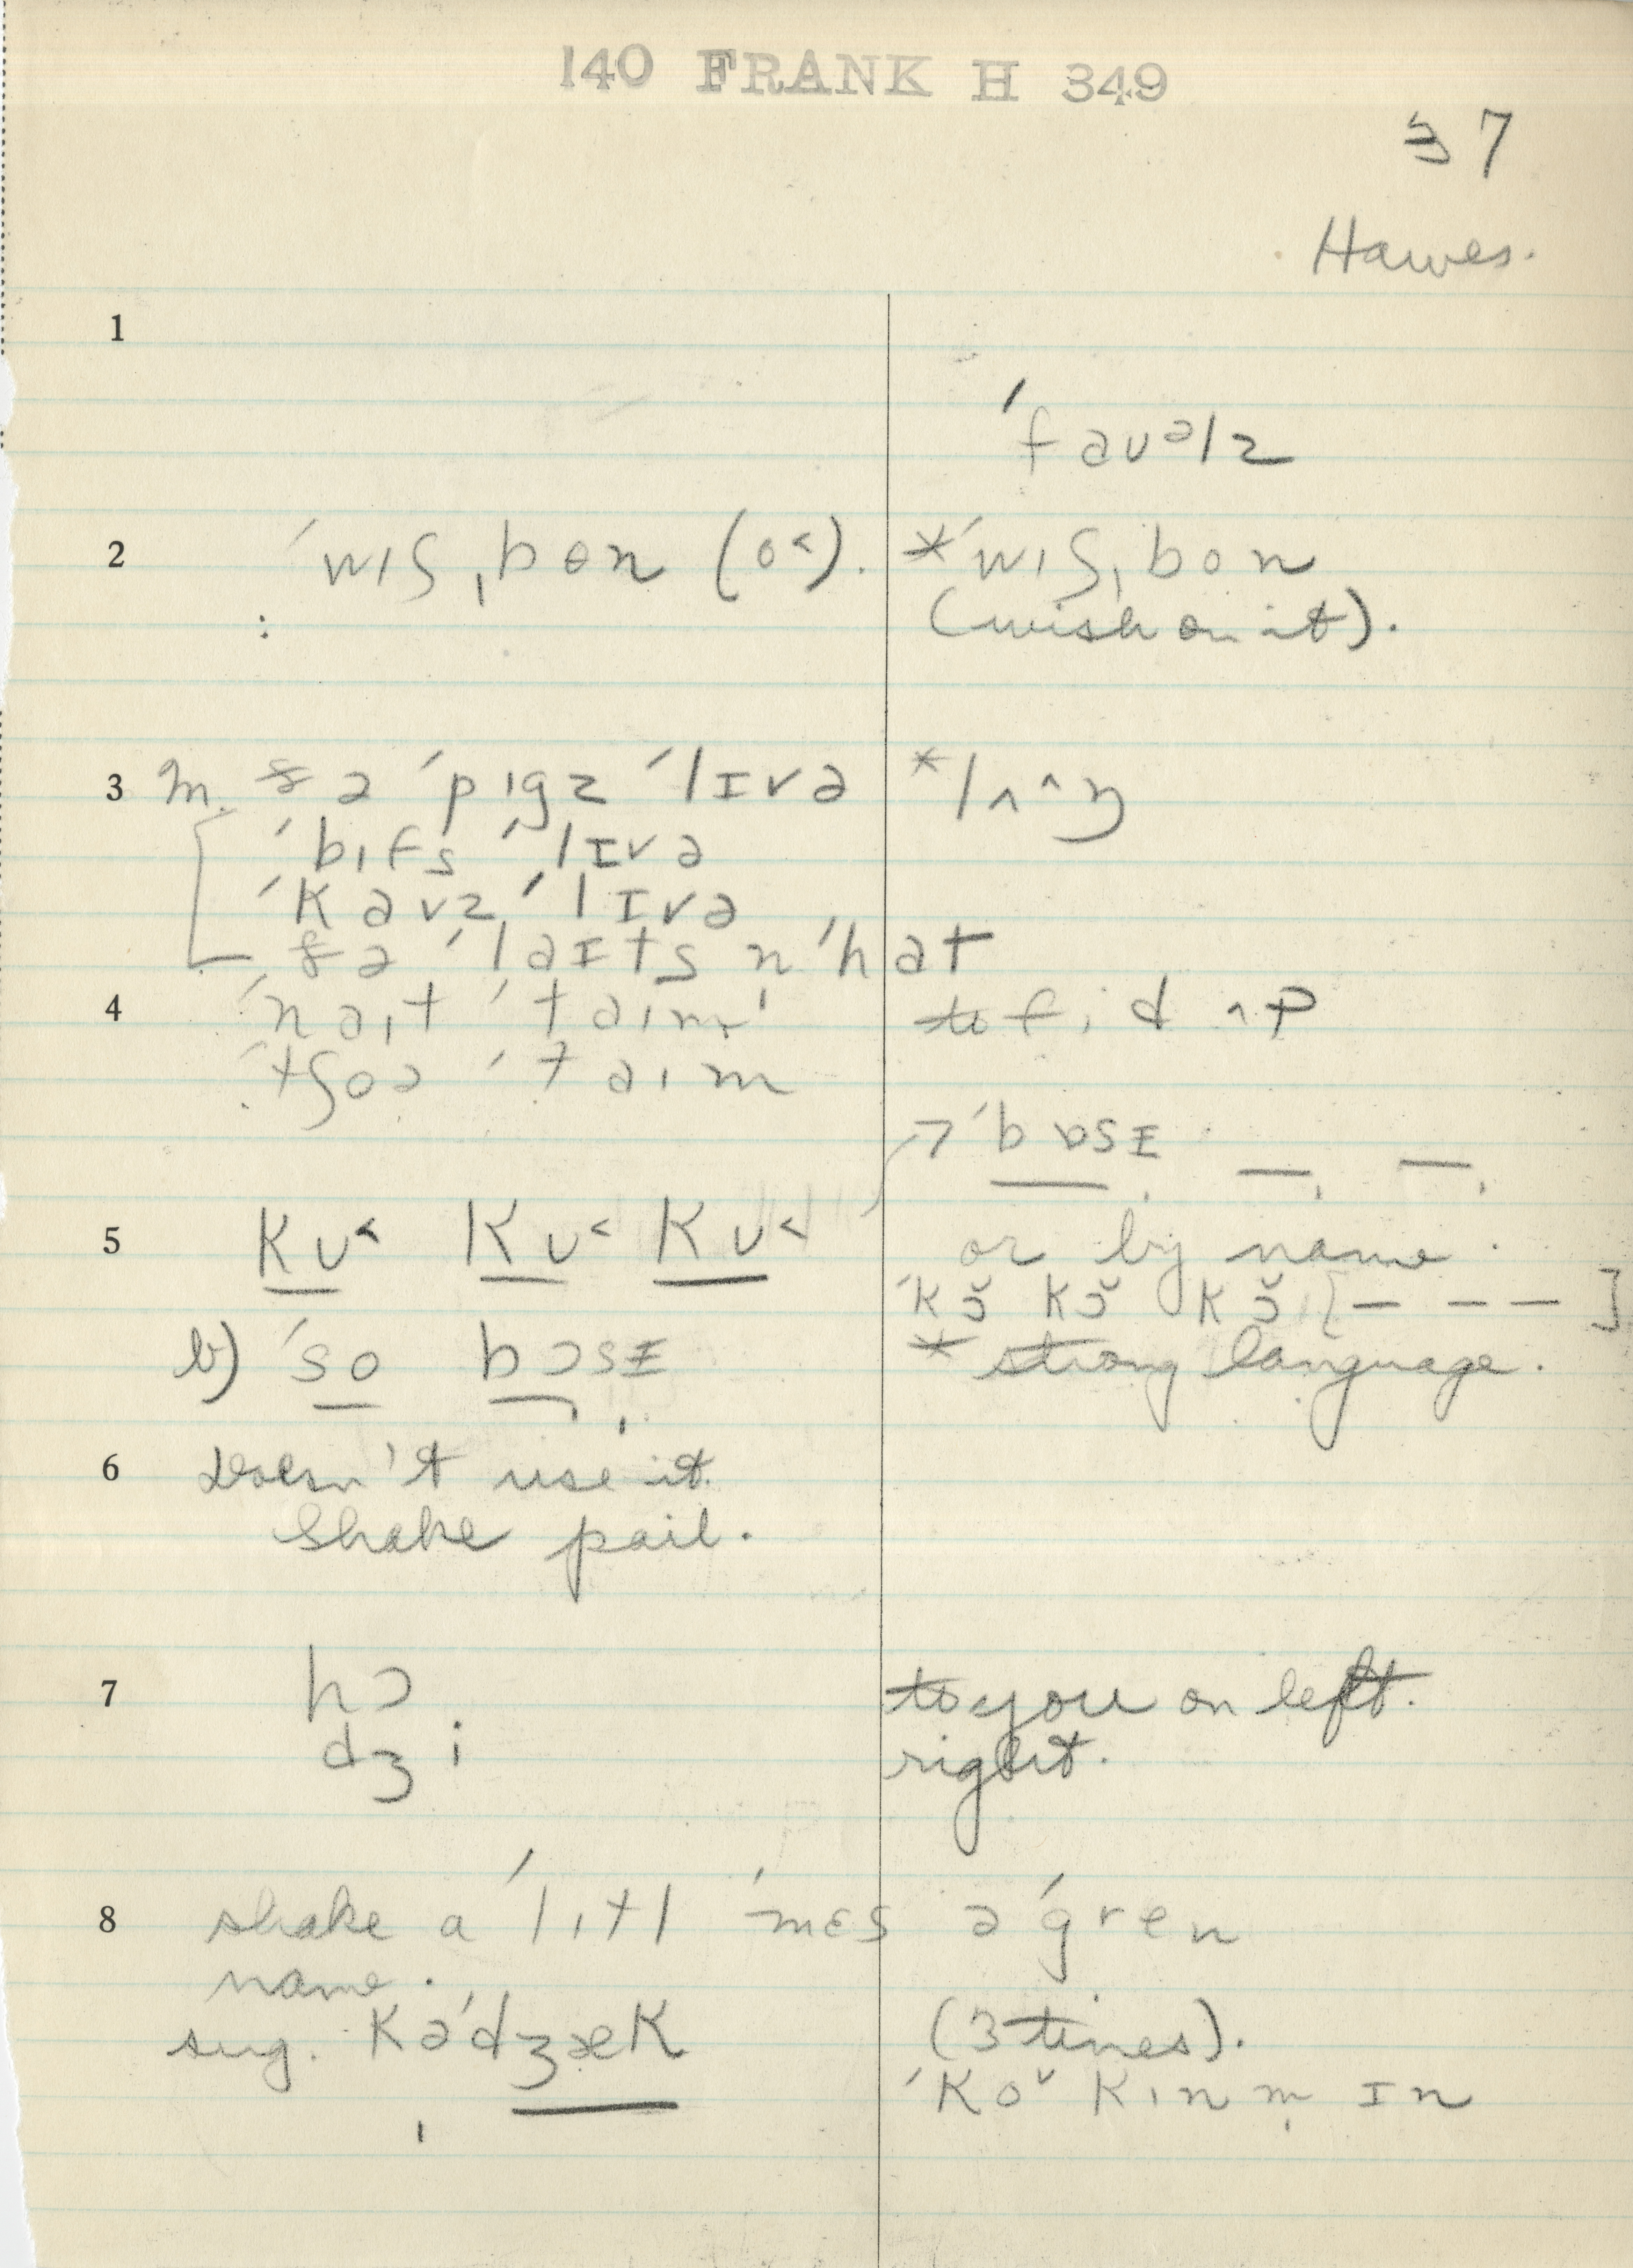 140 FRANK H 349
37
Hawes.
1
ˈfauəlz
2 ˈwɪʃˌbɵn (o<). *ˈwɪʃˌbon
(wish on it).
3 m. ðə ˈpɪgz ˈlɪvə *lʌ^ŋ
ˈbifs ˈlɪvə
ˈkavz ˈlɪvə
ðə ˈlaɪts n ˈhat
4 ˈnaɪt ˈtaɪm to fid ʌp
ˈtʃoə ˈtaɪm
→ ˈbɒsɪ — —
5 Kʊ< Kʊ< Kʊ< or by name.
ˈkɔ̆ kɔ̆ kɔ̆ [— — —]
b) ˈso bɔsɪ * strong language.
6 Doesn't use it.
Shake pail.
7 hɔ to you on left.
dʒi right.
8 shake a ˈlɪtl ˈmɛs ə ˈgren
name.
sug. kəˈdʒæk (3 times).
ˈko˅ kɪn m̩ ɪn